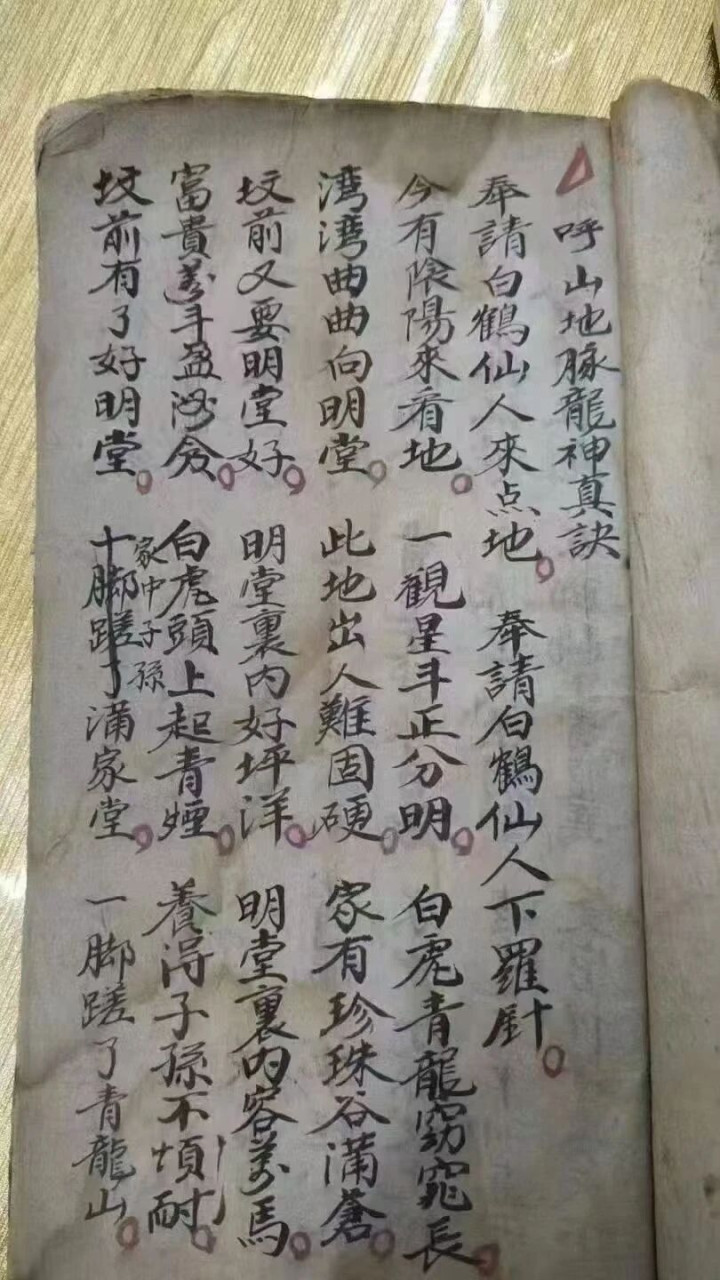 呼山地脉龍神真訣
奉請白鶴仙人來点地。奉請白鶴仙人下羅針。
今有陰陽來看地。一觀星斗正分明。白虎青龍窈窕長。
湾湾曲曲向明堂。此地出人難固硬。家有珍珠谷满蒼。
坟前又要明堂好。明堂裏内好坪洋。明堂裏内容萬馬。
富貴萬斗盈。白虎頭上起青煙。養淂子孫不煩耐。
家中子孫
坟前有了好明堂。十脚蹉了满家堂。一脚蹉了青龍山。